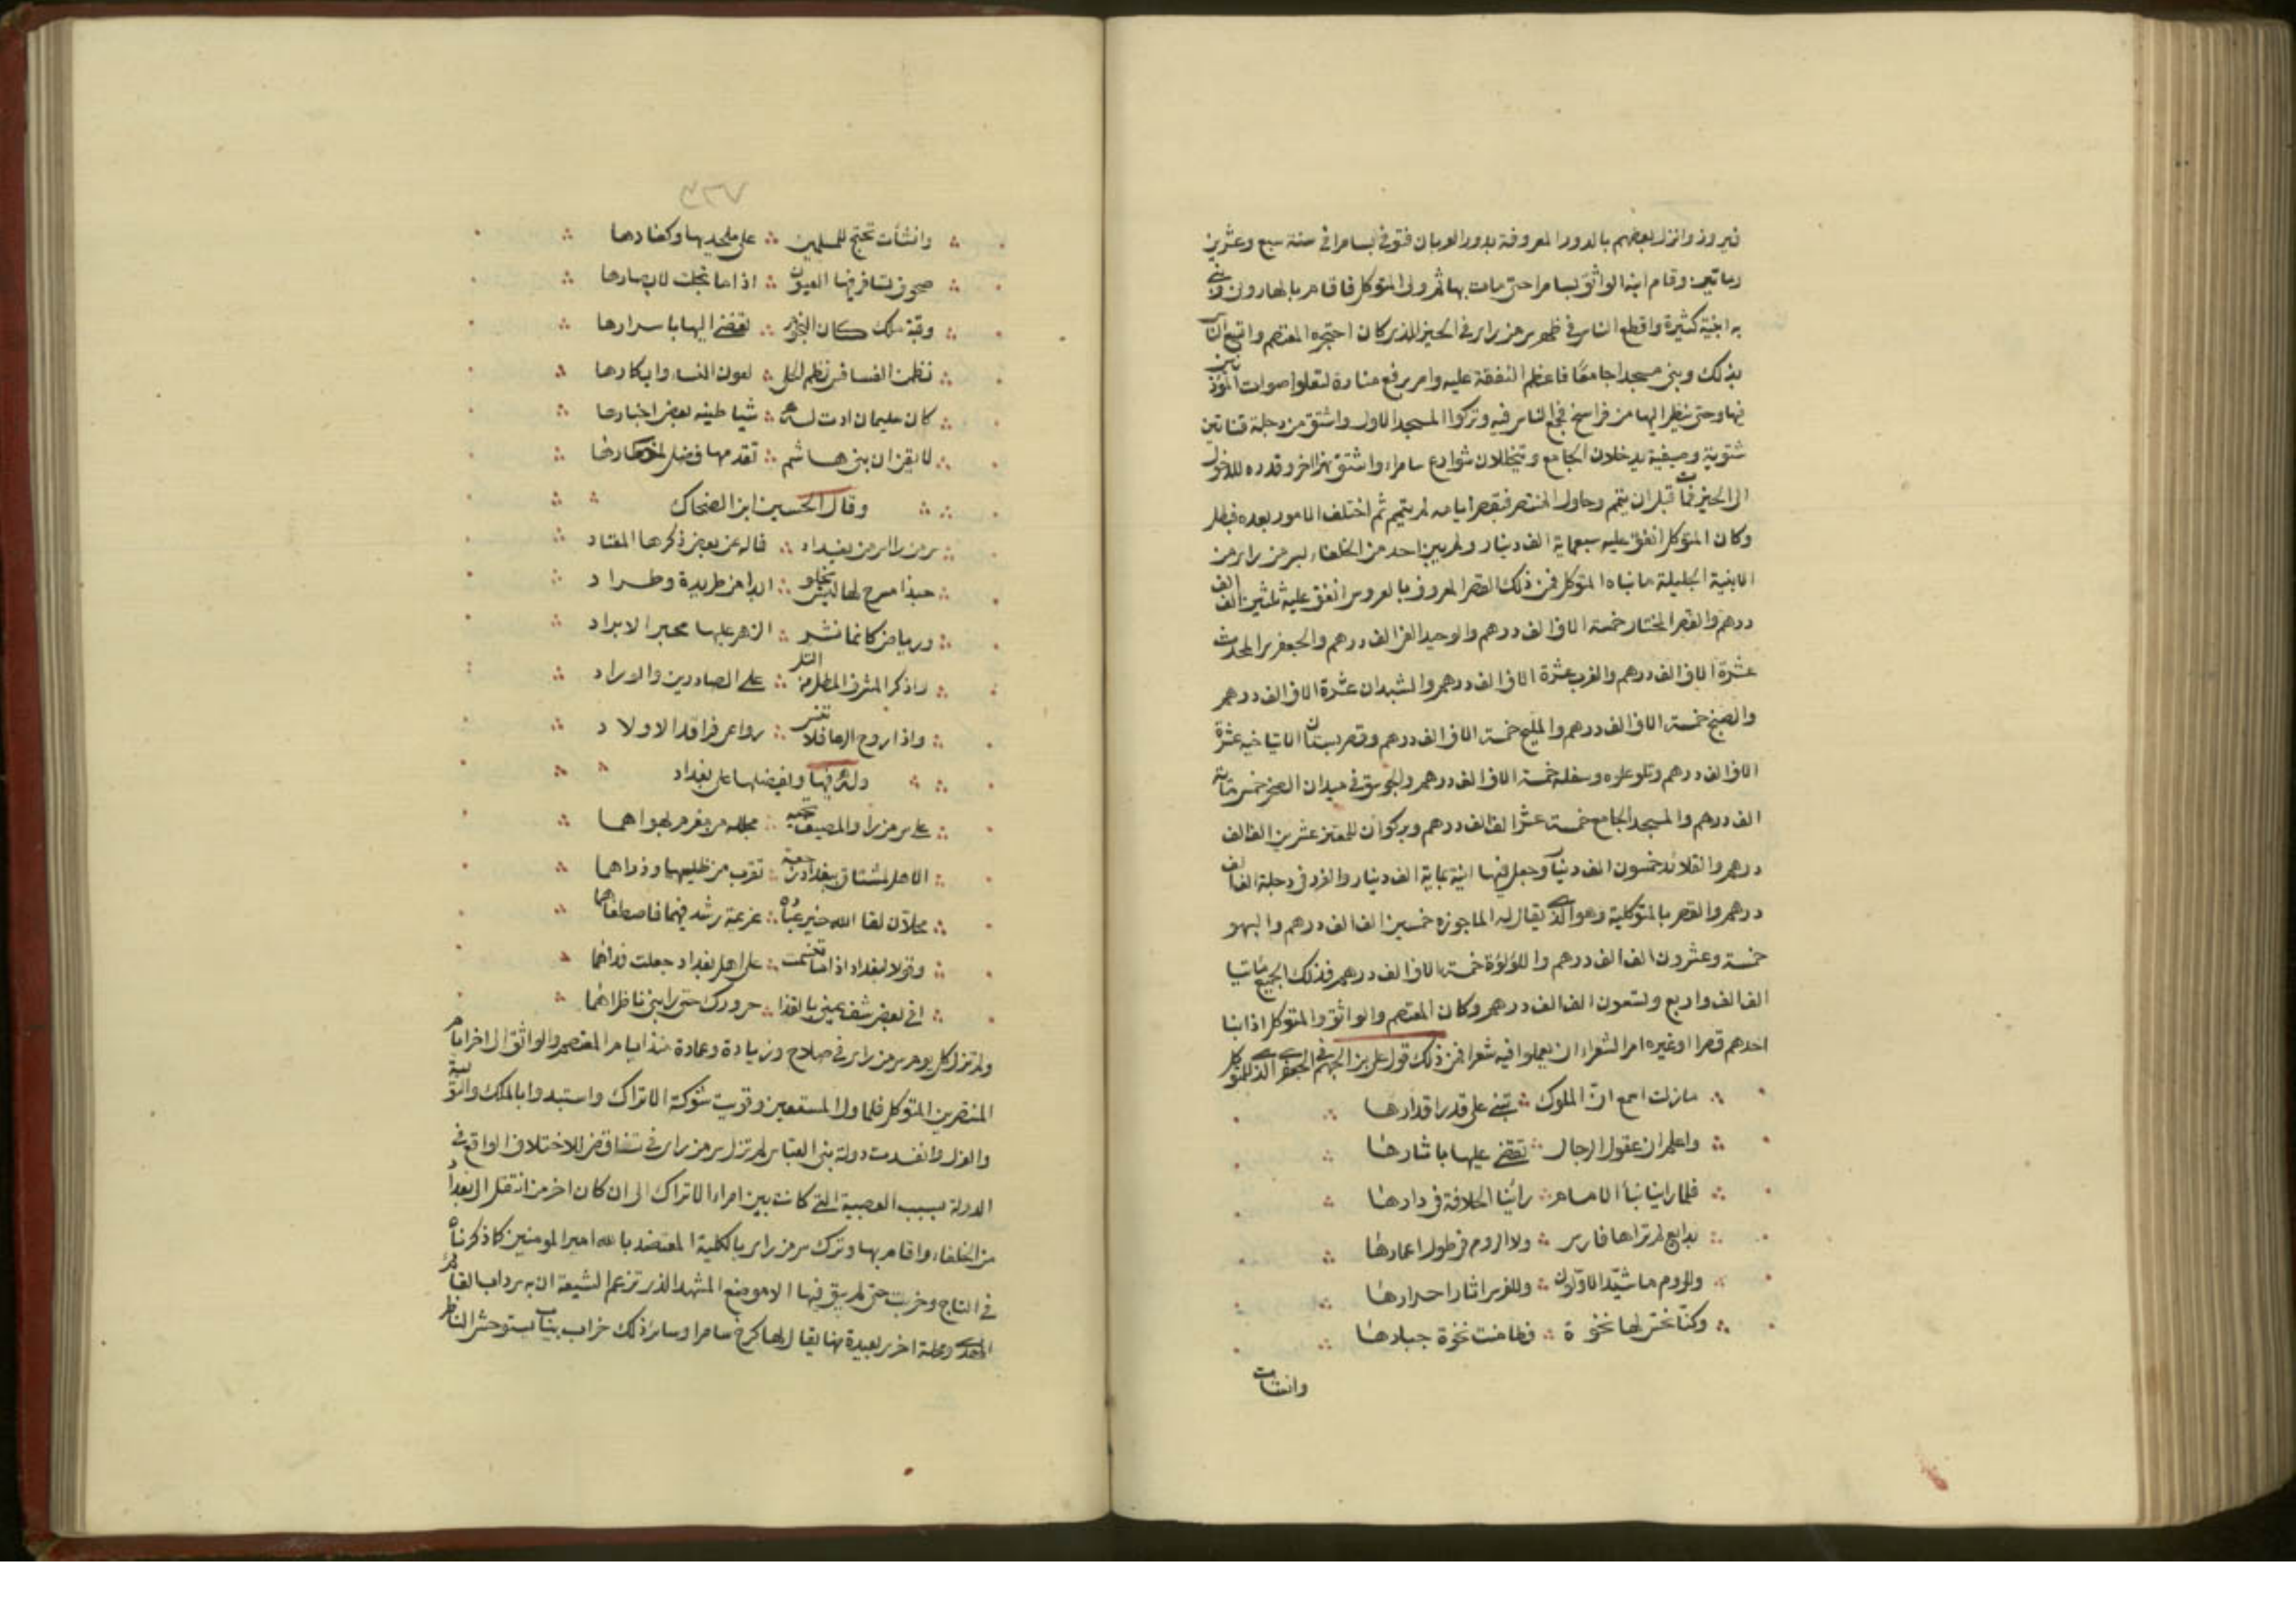 فيروز وانزل بعضهم بالدور المعروفة بدور العربان فتوفي بسامرا في سنة سبع وعشرين
ومايتين وقام ابنه الواثق بسامرا حتى مات بها ثم ولي المتوكل فاقام بالهاروني وبنى
به ابنية كثيرة واقطع الناس في ظهر سر من راى في الحيز الذي كان احتجره المعتصم واتسع الناس
بذلك وبنى مسجدا جامعا فاعظم النفقة عليه وامر برفع منارة لتعلو اصوات المؤذنين
فيها وحتى ينظر اليها من فراسخ فجمع الناس فيه وتركوا المسجد الاول واشتق من دجلة قناتين
شتوية وصيفية يدخلان الجامع ويتخللان شوارع سامرا واشتق نهرا اخر وقدره للدخول
الى الحيز فمات قبل ان يتمم وحاول المنتصر فبقصر ايامه لم يتمم ثم اختلف الامور بعده فبطل
وكان المتوكل انفق عليه سبعماية الف دينار ولم يبن احد من الخلفاء بسر من راى من
الابنية الجليلة ما بناه المتوكل فمن ذلك القصر المعروف بالعروس انفق عليه ثلثين الف الف
درهم والقصر المختار خمسة الاف الف درهم والوحيد الفي الف درهم والجعفري المحدث
عشرة الاف الف درهم والغريب عشرة الاف الف درهم والشبدان عشرة الاف الف درهم
والصبح خمسة الاف الف درهم والمليح خمسة الاف الف درهم وقصر بستان الايتاخيه عشرة
الاف الف درهم وتل علوه وسفله خمسة الاف الف درهم والجوسق في ميدان الصخر خمس ماية
الف درهم والمسجد الجامع خمسة عشر الف الف درهم وبركوان للمعتز عشرين الف الف
درهم والقلائد خمسون الف دينار وجعل فيها ابنية بماية الف دينار والفرد في دجلة الف الف
درهم والقصر بالمتوكلية وهو الذي يقال له الماحوزه خمسين الف الف درهم والبهو
خمسة وعشرون الف الف درهم واللؤلؤة خمسة الاف الف درهم فذلك الجميع مائتيا
الف الف واربع وتسعون الف الف درهم وكان المعتصم والواثق والمتوكل اذا بنا
احدهم قصرا او غيره امر الشعراء ان يعملوا فيه شعرا فمن ذلك قول علي بن الجهم في الجعفري الذي للمتوكل
مازلت اسمع ان الملوك ∴ تبني على قدر اقدارها
واعلم ان عقول الرجال ∴ تقضى عليها باثارها
فلما راينا بنأ الامام ∴ رأينا الخلافة في دارها
بدايع لم تراها فارس ∴ ولا الروم في طول اعمارها
وللروم ما شيد الاولون ∴ وللفرس اثار احرارها
وكنا نحس لها نخوة ∴ فطامنت نخوة جبارها
وانشات
٤٣٧
وانشأت تحتج للمسلمين ∴ على ملحديها وكفارها
صحون تسافر فيها العيون ∴ اذا ما تجلت لابصارها
وقبة ملك كان النجوم ∴ تقضى اليها باسرارها
نظمن الفسافس نظم الحلى ∴ لعون النساء وابكارها
كان سليمان ادت له ∴ شياطينه بعض اخبارها
لايقن ان بني هاشم ∴ تقدمها فضل اخطارها
وقال الحسين ابن الضحاك
سر من را اسر من بغداد ∴ فاله عن بعض ذكرها المعتاد
حبذا مسرح لها ليس يخلو ∴ ابدا من طريدة وطراد
ورياض كانما نشر ∴ الزهر عليها محبر الابراد
واذكر المشرف المطل من التل ∴ على الصادرين والوراد
واذا روح الرعا فلا تنس ∴ رواعي فراقد الاولاد
وله فيها ويفضلها على بغداد
على سر من را والمصيف تحية ∴ مجلله من مغرم بهواهما
الا هل لمشتاق ببغداد رجعة ∴ تقرب من ظليهما وذراهما
محلان لقا الله خير عباده ∴ عزيمة رشد فيهما فاصطفاهما
وقولا لبغداد اذا ما تنسمت ∴ على اهل بغداد جعلت فداهما
افي بعض شف عيني بالقذا ∴ حرورك حتى رابني ناظراهما
ولم تزل كل يوم سر من راى في صلاح وزيادة وعمارة منذ ايام المعتصم والواثق الى اخر ايام
المنتصر بن المتوكل فلما ولي المستعين وقويت شوكة الاتراك واستبدوا بالملك والتولية
والعزل وانفسدت دولة بني العباس لم تزل سر من راى في تناقض للاختلاف الواقع في
الدولة بسبب العصبية التي كانت بين امراء الاتراك الى ان كان اخر من انتقل الى بغداد
من الخلفاء واقام بها وترك سر من راى بالكلية المعتضد بالله امير المومنين كما ذكرناه
في التاج وخربت حتى لم يبق فيها الا موضع المشهد الذي تزعم الشيعة ان به سرداب القائم
المهدي ومحلة اخرى بعيدة منها يقال لها كرخ سامرا وساير ذلك خراب يباب يستوحش الناظر